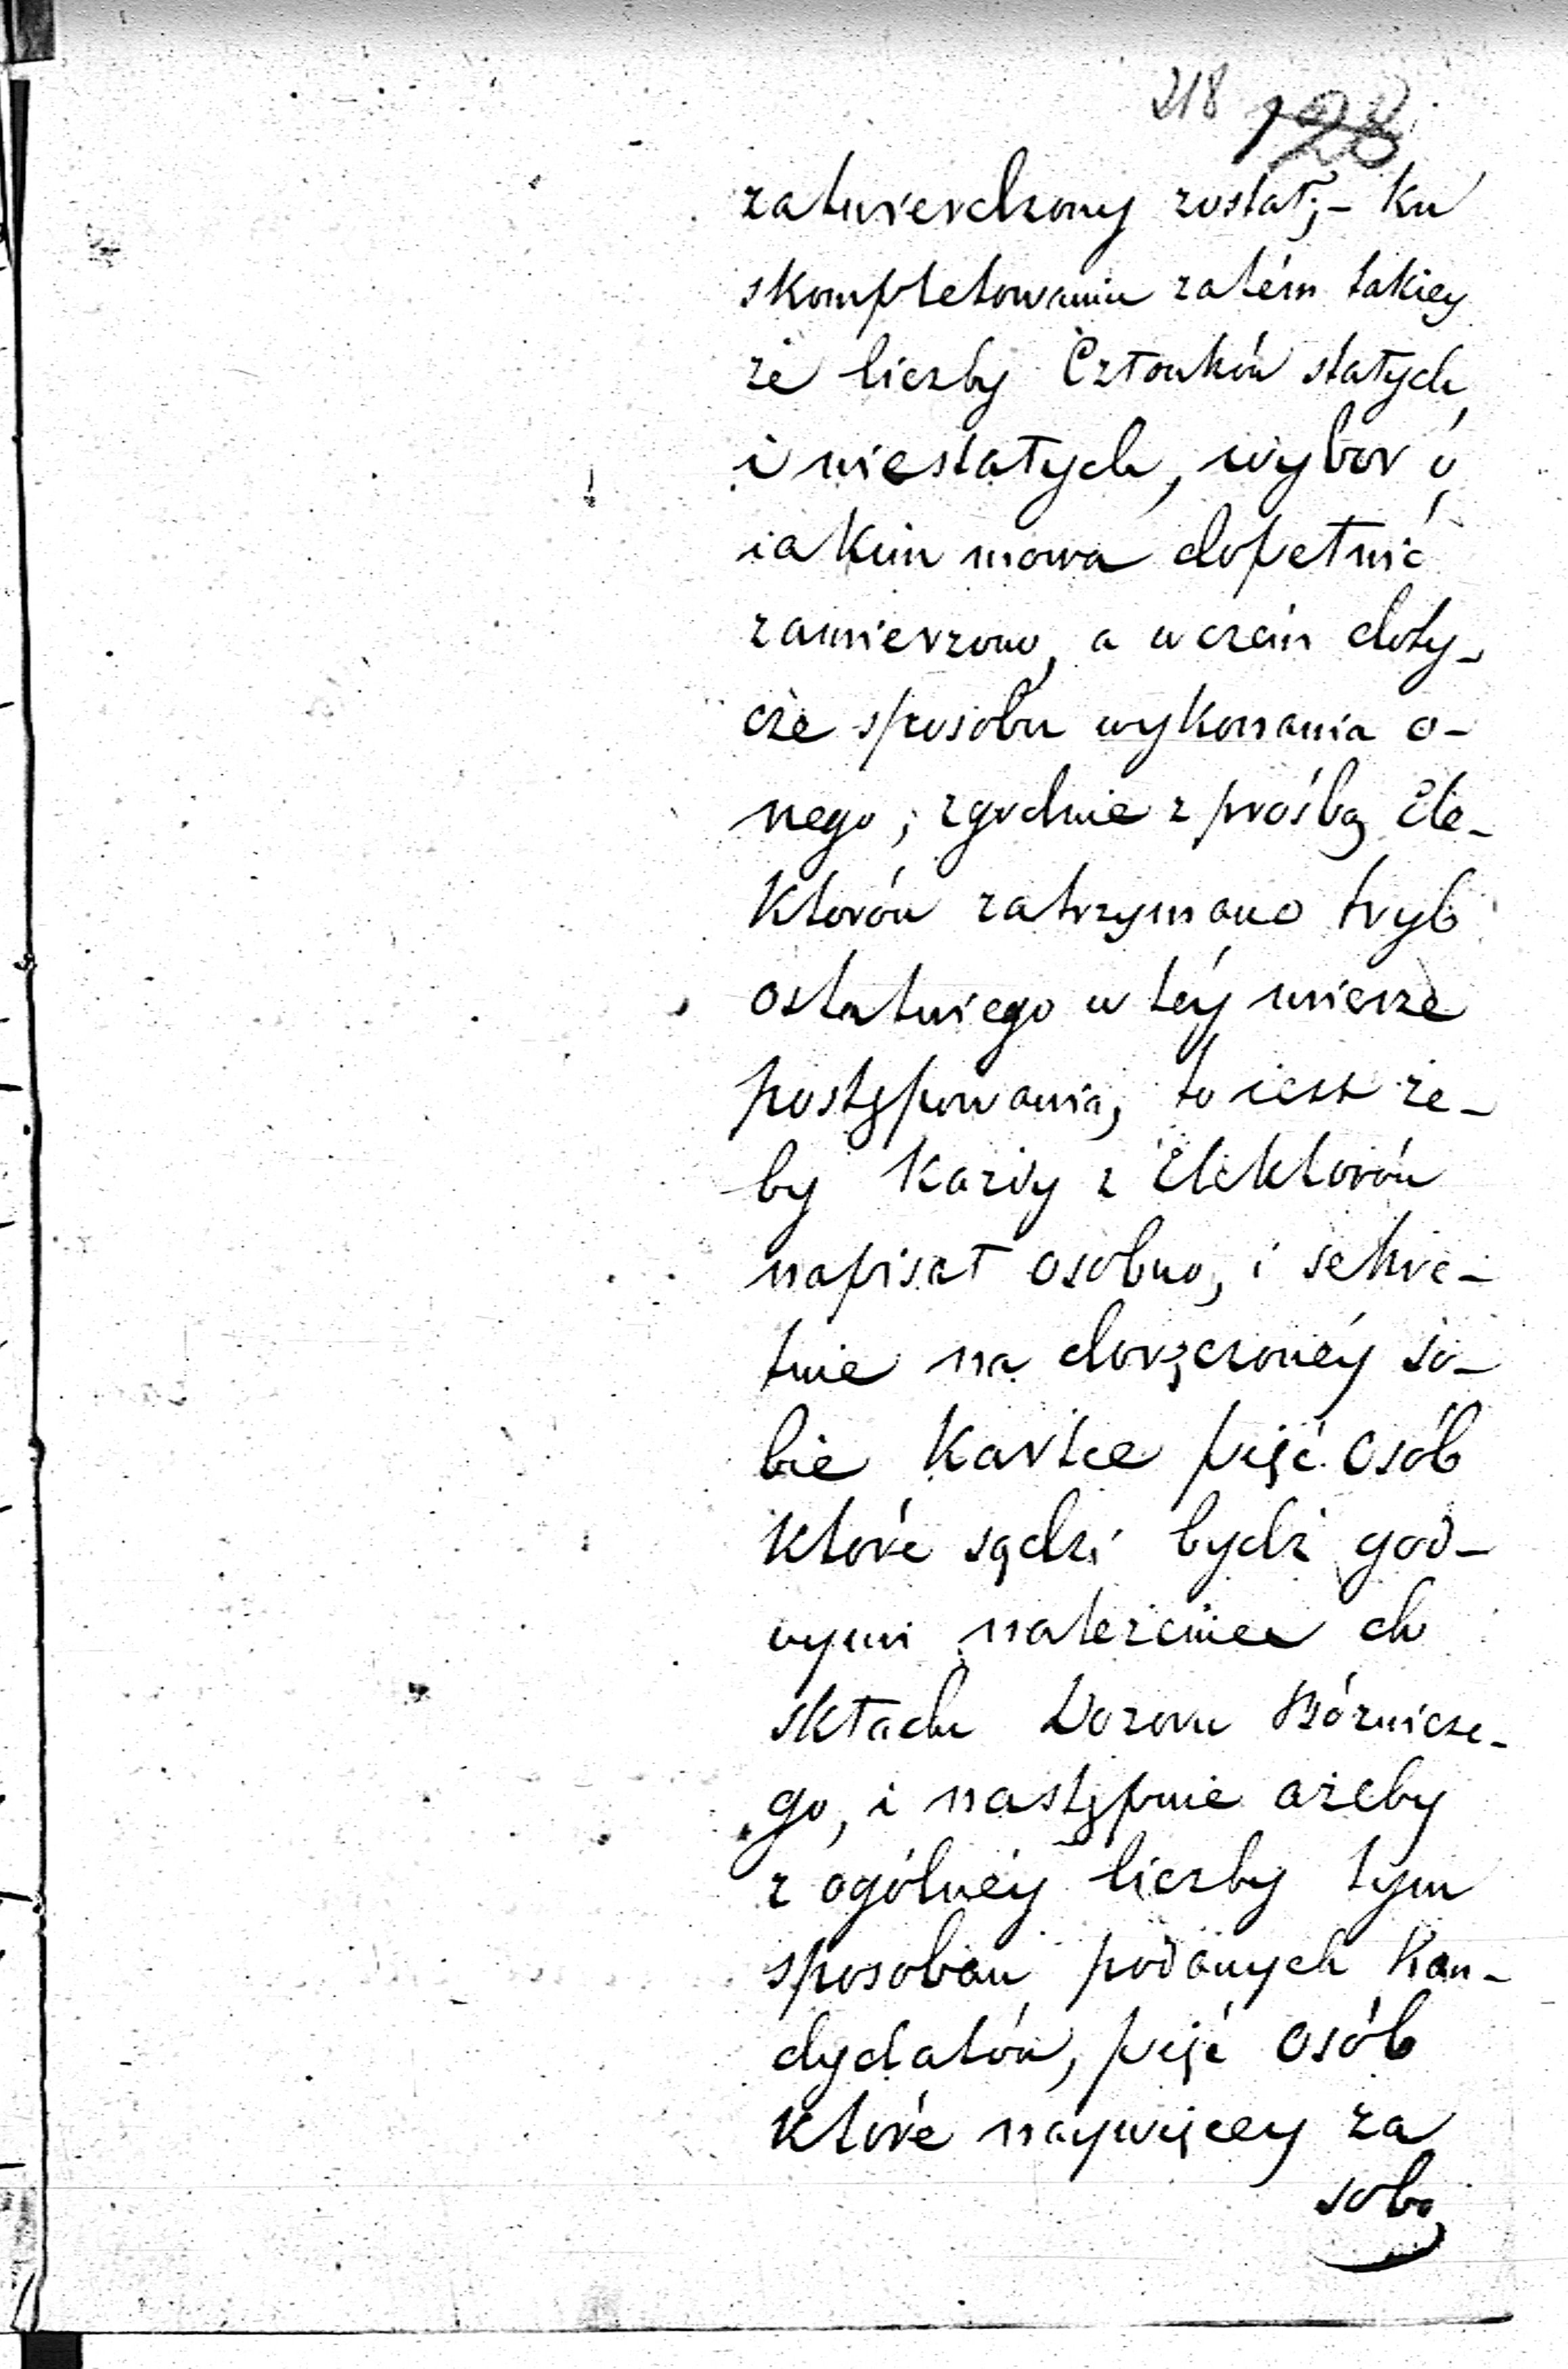 218 128
zatwierdzony został;- Ku
skompletowaniu zatém takiey
że liczby Członków stałych
i niestałych, wybor o
iakim mowa dopełnić
zamierzono, a w czém doty-
cze sposobu wykonania o-
nego, zgodnie z prośbą Ele-
ktorów zatrzymano tryb
ostatniego w téy mierze
postępowania, to iest że-
by każdy z Elektorów
napisał osobno, i sekre-
tnie na doręczonéy so-
bie kartce pięć osób
które sądzi bydź god-
nymi należenia do
składu Dozoru Bóżnicze-
go, i następnie ażeby
z ogólnéy liczby tym
sposobem podanych Kan-
dydatów, pięć osób
które naywięcey za
sobą